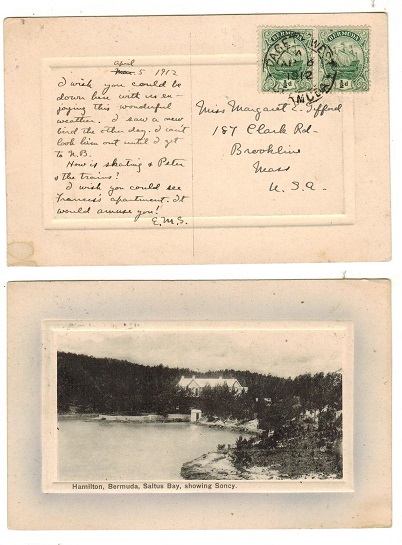 april
Mar. 5 1912
I wish you could be
down here with us en-
joying this wonderful
weather. I saw a new
bird the other day. I can't
look him out until I get
to N.B.
How is skating & Peter
& the trains?
I wish you could see
Frances's apartment. It
would amuse you!
E.M.S.
BERMUDA
½d
BERMUDA
½d
PAGET WEST
1912
Miss Margaret E. Tifford
187 Clark Rd-
Brookline
Mass
U.S.A.
Hamilton, Bermuda, Saltus Bay, showing Soncy.